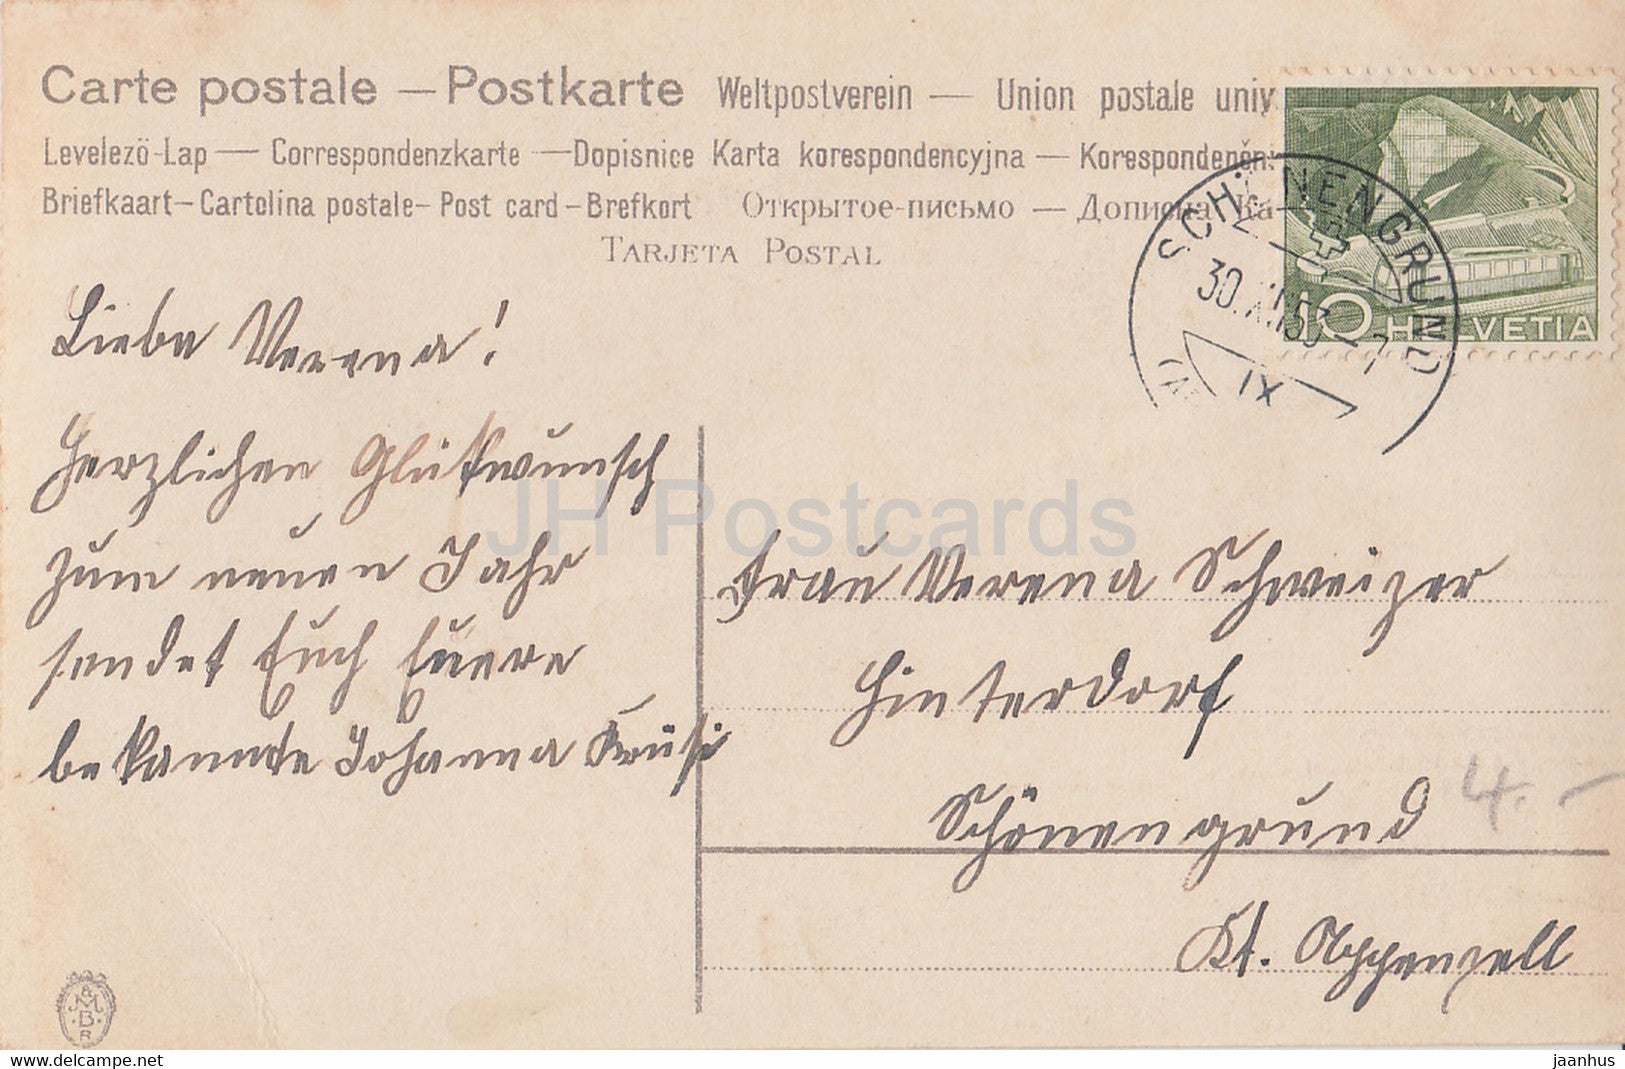 Carte postale — Postkarte Weltpostverein — Union postale univ
Levelezö-Lap — Correspondenzkarte — Dopisnice Karta korespondencyjna — Korespondenčn
Briefkaart — Cartolina postale — Post card — Brefkort Открытое-письмо — Дописна Ка
TARJETA POSTAL
SCHÖNENGRUND
30.XII.53 — 7
IX
10 HELVETIA
Liebe Verena!
Herzlichen Glükwunsch
zum neuen Jahr
sendet Euch Euere
bekannte Johanna Krüsi
Frau Verena Schweizer
Hinterdorf
Schönengrund
Kt. Appenzell
4.-
JH Postcards
M
B
R
www.delcampe.net
jaanhus